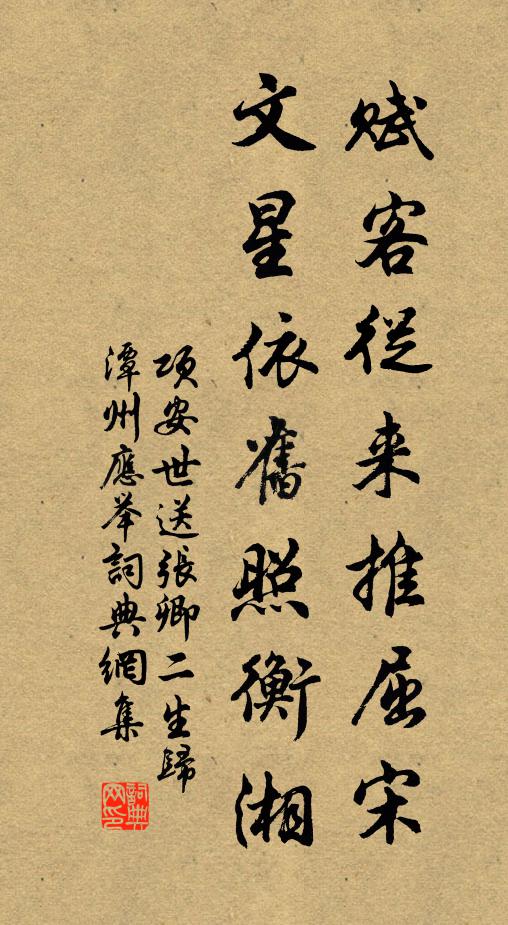 赋客從来推屈宋
文星依舊照衡湘
項安世送張卿二生歸
潭州應举詞典網集
詞典
网印